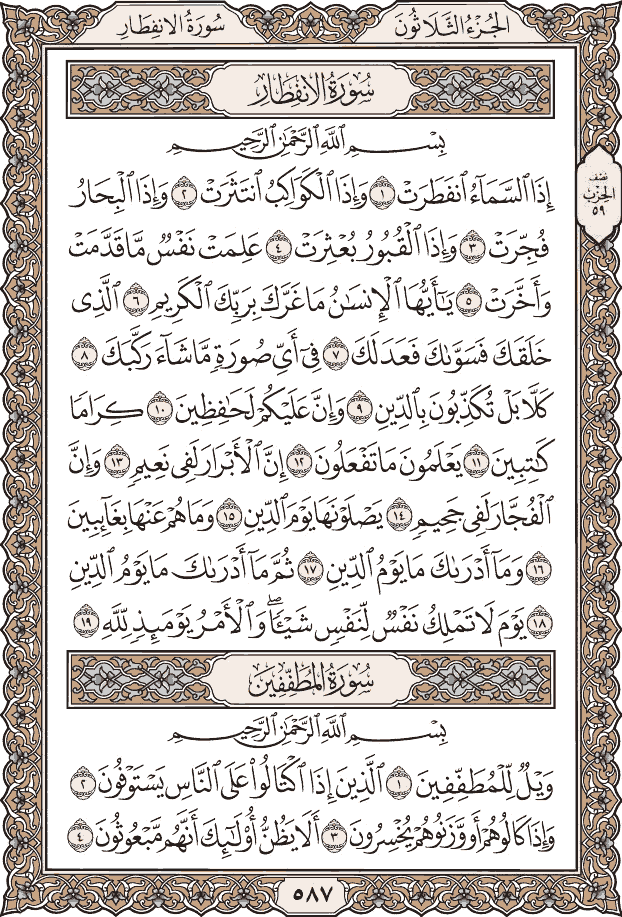 سُورَةُ الِانفِطَارِ
الجُزْءُ الثَّلَاثُونَ
سُورَةُ الِانفِطَارِ
بِسْمِ ٱللَّهِ ٱلرَّحْمَٰنِ ٱلرَّحِيمِ
نصف
الحزب
٥٩
إِذَا ٱلسَّمَآءُ ٱنفَطَرَتْ ١ وَإِذَا ٱلْكَوَاكِبُ ٱنتَثَرَتْ ٢ وَإِذَا ٱلْبِحَارُ
فُجِّرَتْ ٣ وَإِذَا ٱلْقُبُورُ بُعْثِرَتْ ٤ عَلِمَتْ نَفْسٌ مَّا قَدَّمَتْ
وَأَخَّرَتْ ٥ يَٰٓأَيُّهَا ٱلْإِنسَٰنُ مَا غَرَّكَ بِرَبِّكَ ٱلْكَرِيمِ ٦ ٱلَّذِى
خَلَقَكَ فَسَوَّىٰكَ فَعَدَلَكَ ٧ فِىٓ أَىِّ صُورَةٍ مَّا شَآءَ رَكَّبَكَ ٨
كَلَّا بَلْ تُكَذِّبُونَ بِٱلدِّينِ ٩ وَإِنَّ عَلَيْكُمْ لَحَٰفِظِينَ ١٠ كِرَامًا
كَٰتِبِينَ ١١ يَعْلَمُونَ مَا تَفْعَلُونَ ١٢ إِنَّ ٱلْأَبْرَارَ لَفِى نَعِيمٍ ١٣ وَإِنَّ
ٱلْفُجَّارَ لَفِى جَحِيمٍ ١٤ يَصْلَوْنَهَا يَوْمَ ٱلدِّينِ ١٥ وَمَا هُمْ عَنْهَا بِغَآئِبِينَ
١٦ وَمَآ أَدْرَىٰكَ مَا يَوْمُ ٱلدِّينِ ١٧ ثُمَّ مَآ أَدْرَىٰكَ مَا يَوْمُ ٱلدِّينِ
١٨ يَوْمَ لَا تَمْلِكُ نَفْسٌ لِّنَفْسٍ شَيْـًٔا ۖ وَٱلْأَمْرُ يَوْمَئِذٍ لِّلَّهِ ١٩
سُورَةُ المُطَفِّفِينَ
بِسْمِ ٱللَّهِ ٱلرَّحْمَٰنِ ٱلرَّحِيمِ
وَيْلٌ لِّلْمُطَفِّفِينَ ١ ٱلَّذِينَ إِذَا ٱكْتَالُوا۟ عَلَى ٱلنَّاسِ يَسْتَوْفُونَ ٢
وَإِذَا كَالُوهُمْ أَو وَّزَنُوهُمْ يُخْسِرُونَ ٣ أَلَا يَظُنُّ أُو۟لَٰٓئِكَ أَنَّهُم مَّبْعُوثُونَ ٤
٥٨٧